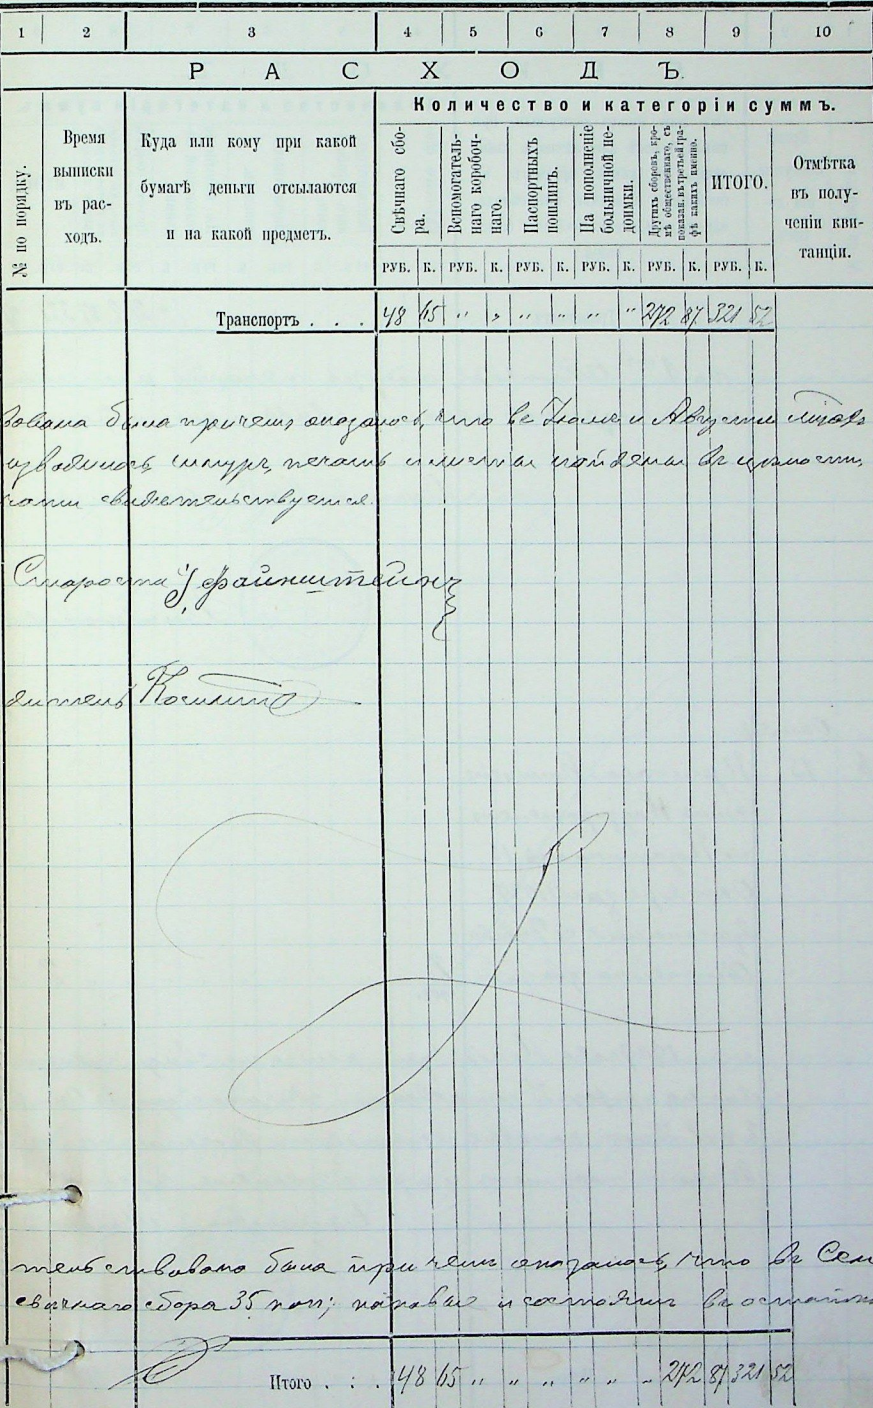 1 2 3 4 5 6 7 8 9 10
РАСХОДЪ.
Количество и категорiи суммъ.
№ по порядку.
Время выписки въ рас-
ходъ.
Куда или кому при какой
бумагѣ деньги отсылаются
и на какой предметъ.
Свѣчнаго сбо-
ра.
Вспомогатель-
наго коробоч-
наго.
Паспортныхъ
пошлинъ.
На пополненіе
больничной не-
доимки.
Другихъ сборовъ, кро-
мѣ общественнаго, съ
показан. въ третьей гра-
фѣ какихъ именно.
ИТОГО.
Отмѣтка
въ полу-
ченіи кви-
танціи.
РУБ. К. РУБ. К. РУБ. К. РУБ. К. РУБ. К. РУБ. К.
Транспортъ . . . 48 65 " " " " " " 272 87 321 52
была причемъ оказалось, что въ Іюлѣ и Августѣ
шнуръ, печать и листы найдены въ цѣлости,
свидѣтельствуется.
Староста Файнштейнъ
тельствована была причемъ оказалось, что въ Сен
свѣчнаго сбора 35 коп; и состоитъ въ остатк
Итого . : . 48 65 " " " " " " 272 87 321 52